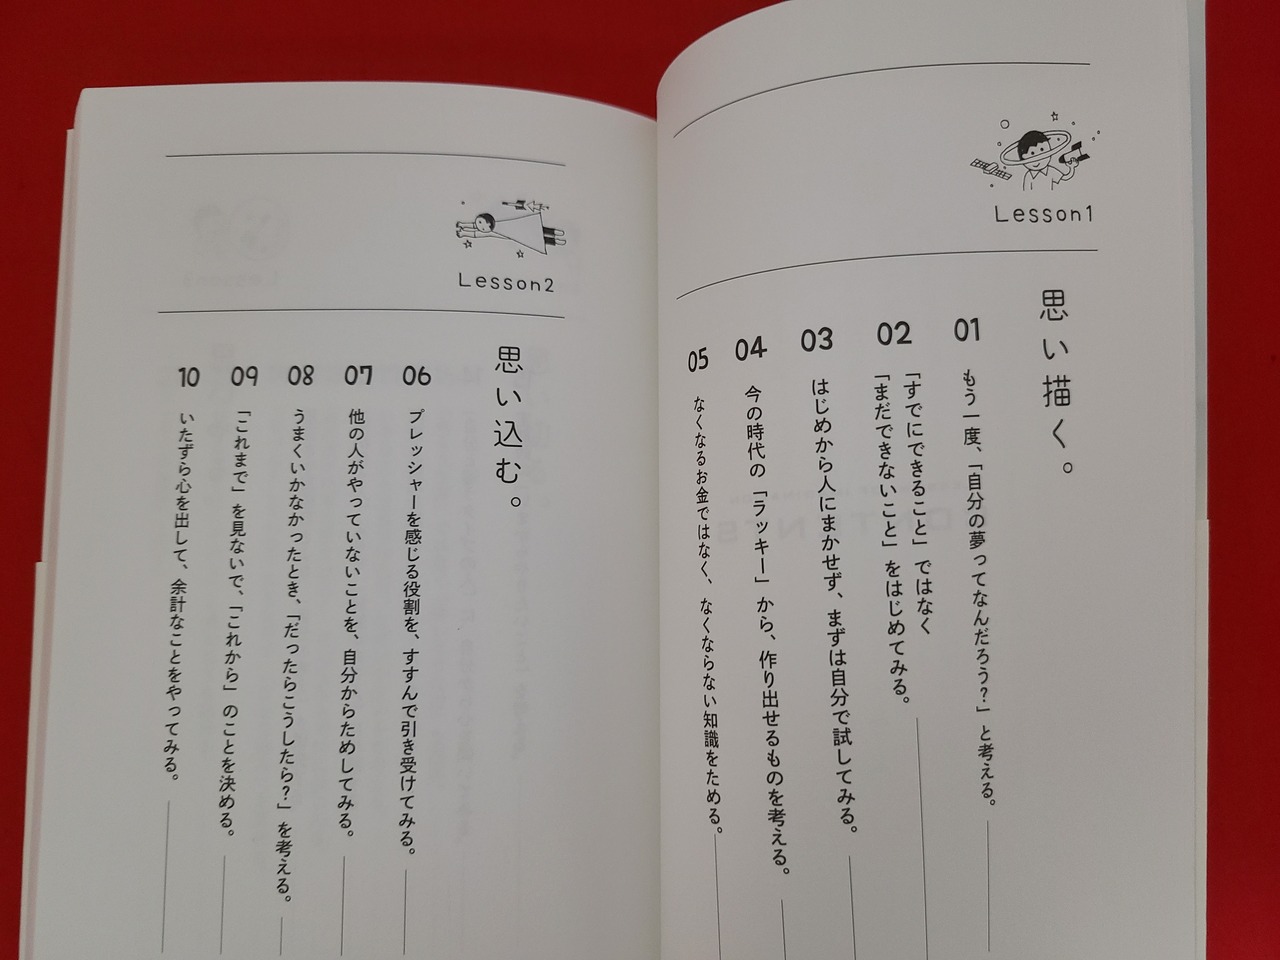 Lesson1
思い描く。
01
もう一度、「自分の夢ってなんだろう?」と考える。
02
「すでにできること」ではなく
「まだできないこと」をはじめてみる。
03
はじめから人にまかせず、まずは自分で試してみる。
04
今の時代の「ラッキー」から、作り出せるものを考える。
05
なくなるお金ではなく、なくならない知識をためる。
Lesson2
思い込む。
06
プレッシャーを感じる役割を、すすんで引き受けてみる。
07
他の人がやっていないことを、自分からためしてみる。
08
うまくいかなかったとき、「だったらこうしたら?」を考える。
09
「これまで」を見ないで、「これから」のことを決める。
10
いたずら心を出して、余計なことをやってみる。